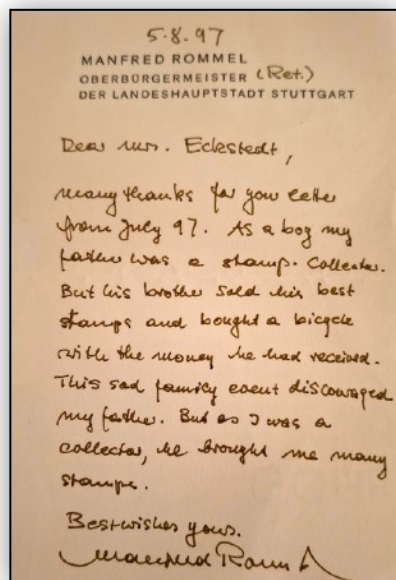 5.8.97
MANFRED ROMMEL
OBERBÜRGERMEISTER (Ret.)
DER LANDESHAUPTSTADT STUTTGART
Dear Mrs. Eckstedt,
many thanks for your letter
from July 97. As a boy my
father was a stamp-collector.
But his brother sold his best
stamps and bought a bicycle
with the money he had received.
This sad family event discouraged
my father. But as I was a
collector, he brought me many
stamps.
Best wishes yours.
Manfred Rommel